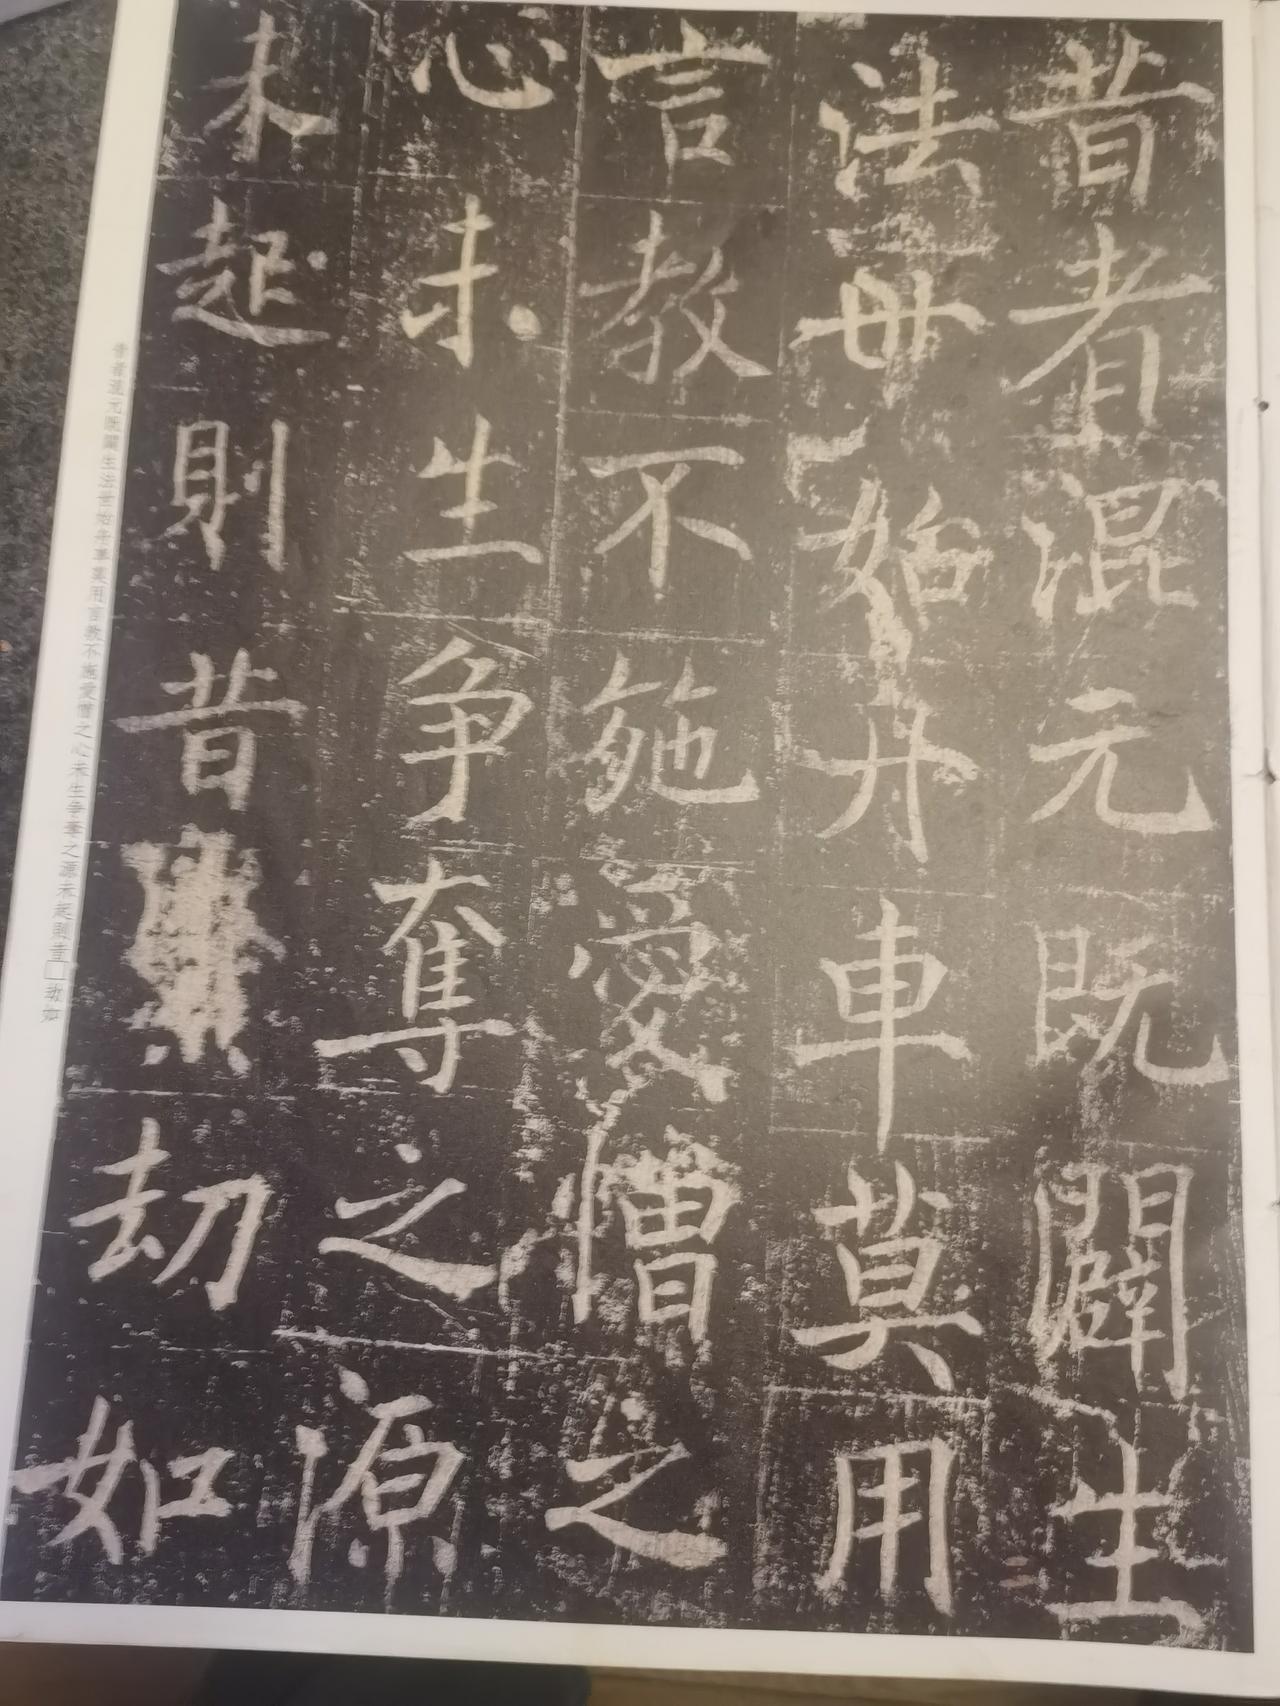 昔者混元既闢生
法世始舟車莫用
言教不施愛憎之
心未生争奪之源
未起則昔劫如
昔者混元既闢生法世始舟車莫用言教不施愛憎之心未生争奪之源未起則昔□劫如